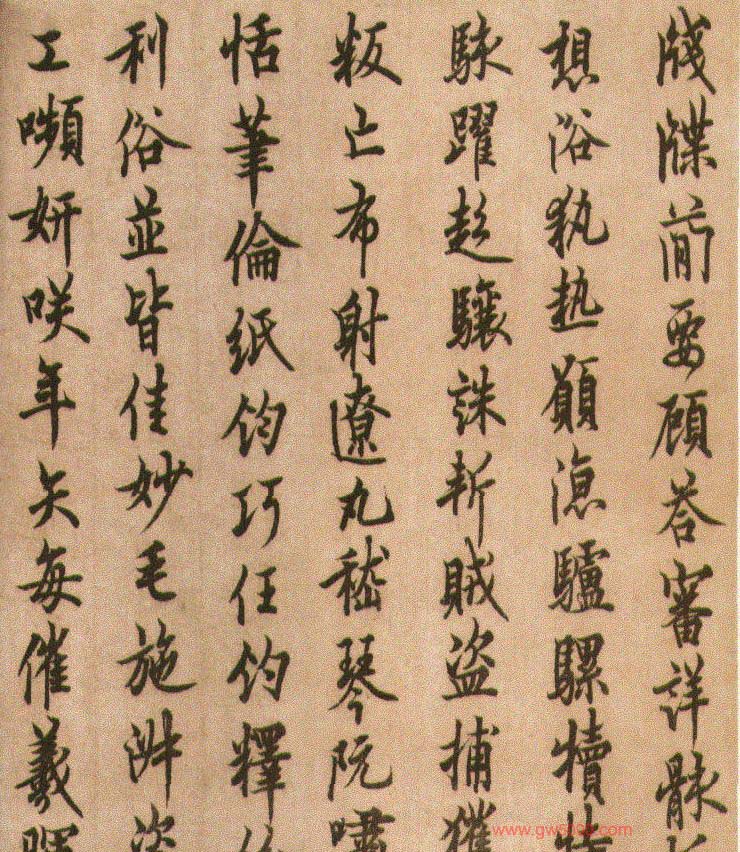 牋牒簡要顧答審詳骸
想浴執熱願涼驢騾犢特
駭躍超驤誅斬賊盜捕獲
叛亡布射遼丸嵇琴阮嘯
恬筆倫紙鈞巧任釣釋
利俗並皆佳妙毛施淑姿
工嚬妍咲年矢每催羲暉